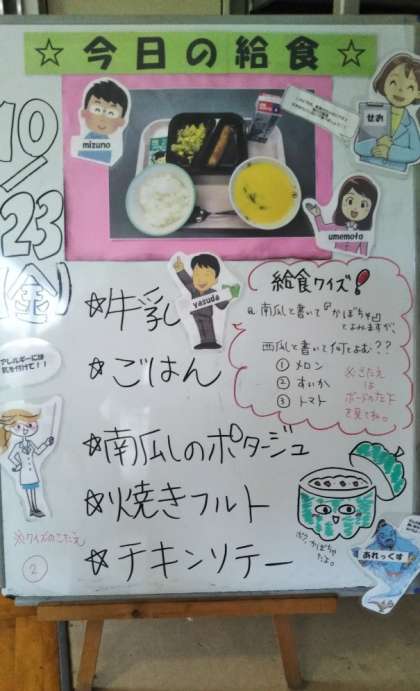 ☆今日の給食☆
10/23
(金)
mizuno
せお
umemoto
yasuda
☆牛乳
☆ごはん
☆南瓜しのポタージュ
☆焼きフルト
☆チキンソテー
給食クイズ!
Q.南瓜と書いて『かぼちゃ』
とよみますが、
西瓜と書いて何とよむ??
① メロン
② すいか
③ トマト
※こたえ
は
ボードの左下
を見てね。
アレルギーには
気を付けて!!
ボク、かぼちゃ
だよ。
あれっくす
※クイズのこたえ
②